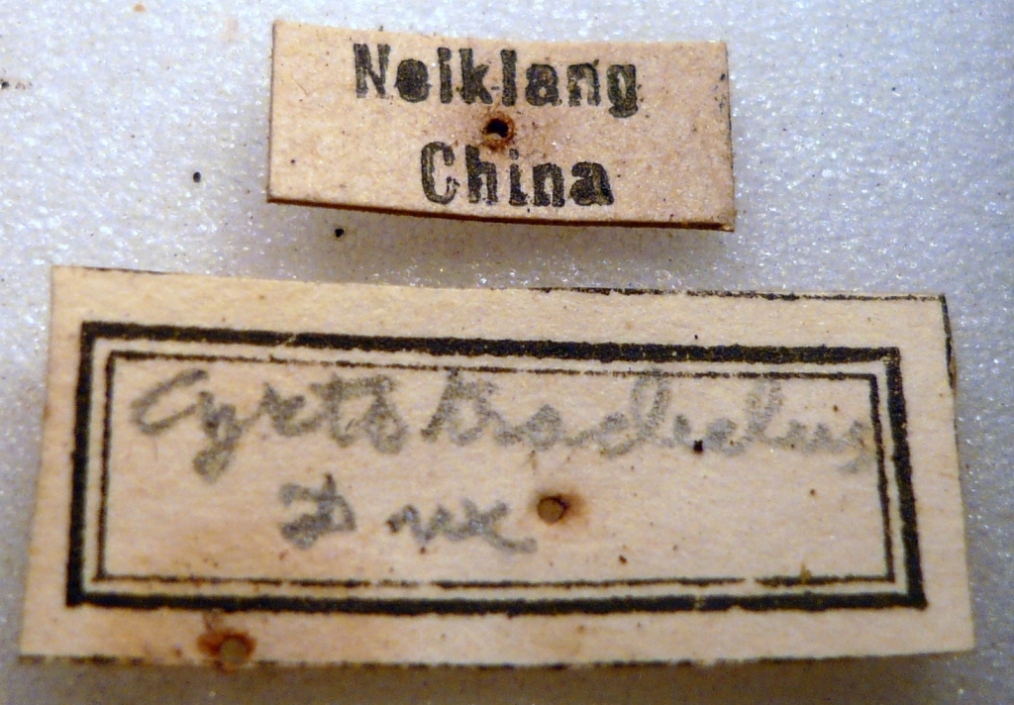 Neikiang
China
Cyrtotrachelus
Dux